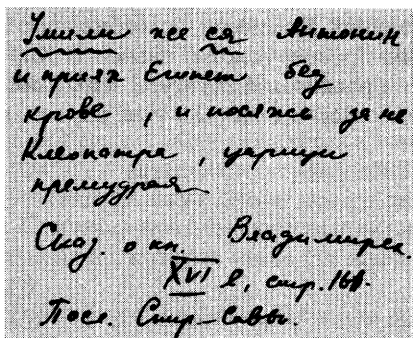 Умили же ся Антонин
и прия Египет без
крове, и посяже за не
Клеопатра, царици
премудрая
Сказ. о кн. Владимирск.
XVI в, стр. 161.
Посл. Спир-Саввы.